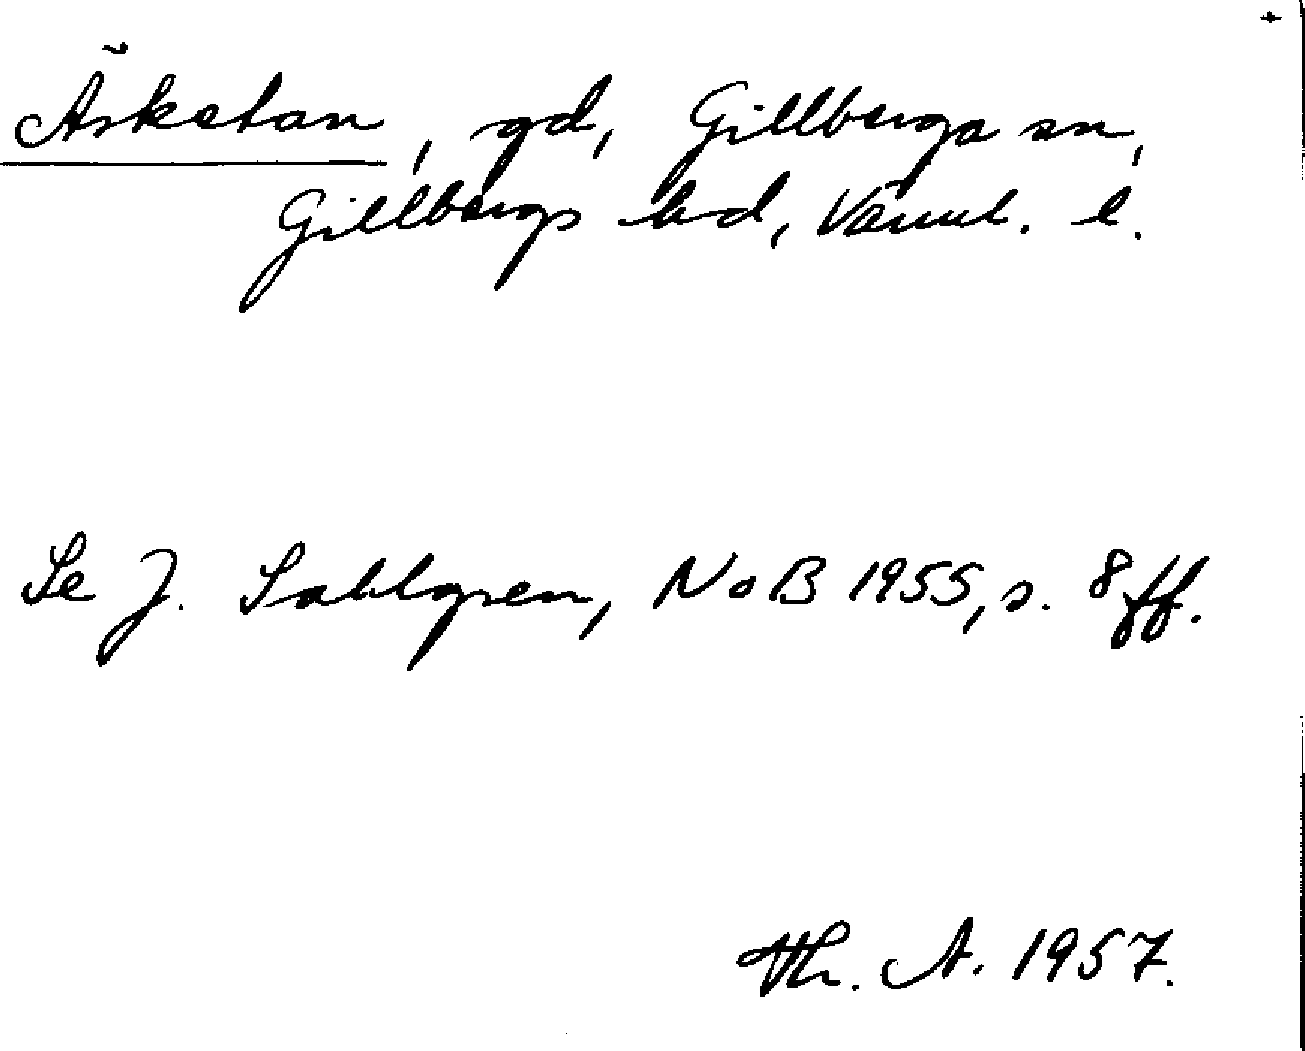 +
Äskatan, gd, Gillberga sn,
Gillbergs hd, Värml. l.
Se J. Sahlgren, NoB 1955, s. 8 ff.
Th. A. 1957.